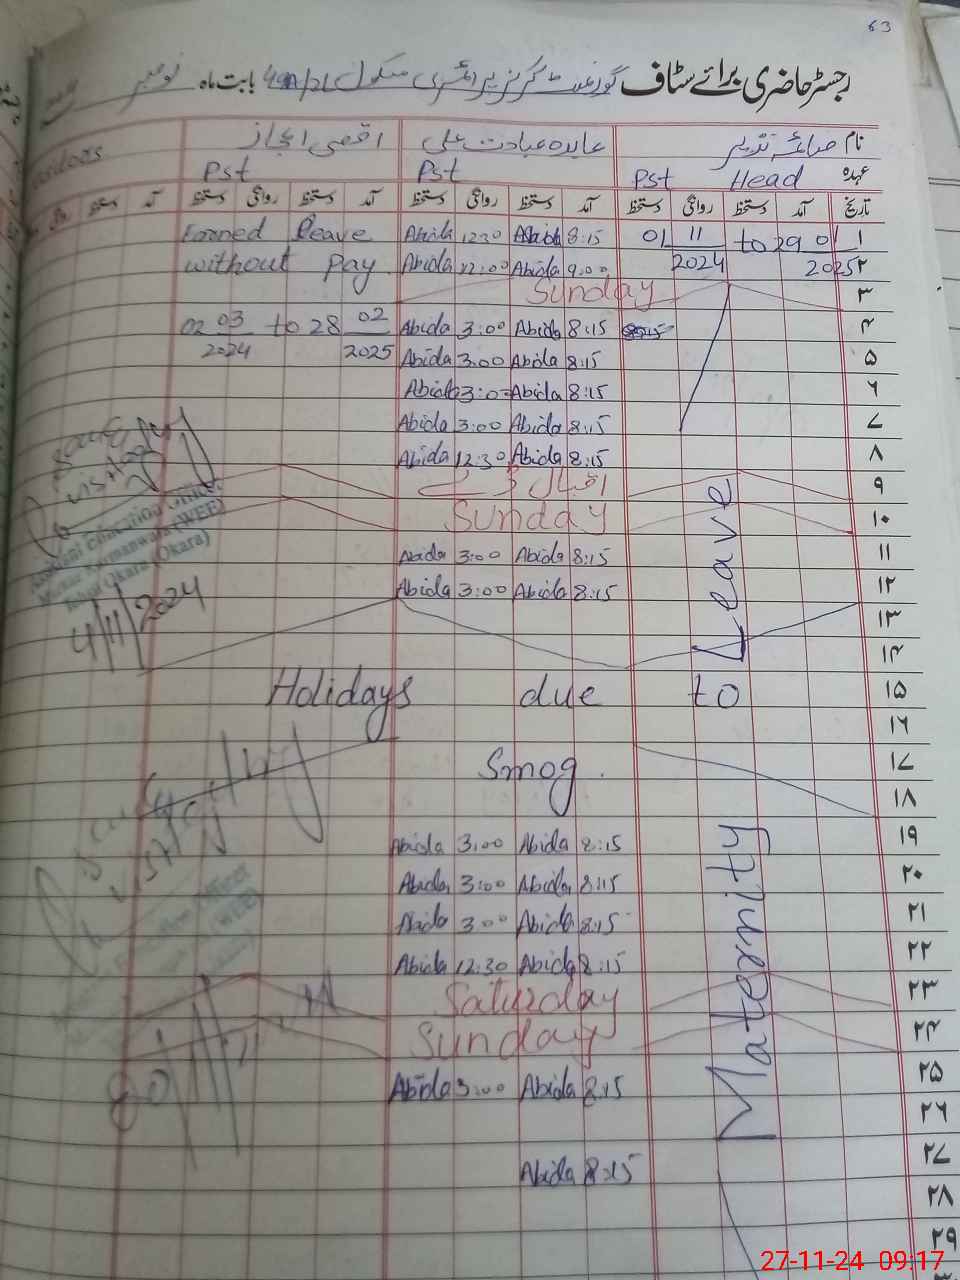 63
رجسٹر حاضری برائے سٹاف گورنمنٹ گرلز پرائمری سکول 4GD/2L بابت ماہ نومبر
نام صائمہ نذیر عابدہ عبادت علی اقصیٰ اعجاز
عہدہ Head Pst Pst Pst
تاریخ آمد دستخط روانگی دستخط آمد دستخط روانگی دستخط آمد دستخط روانگی دستخط آمد
۱ 01 11 to 29 01 Abida 12:30 Abida 8:15 Earned Leave
۲ 2024 2025 Abida 12:00 Abida 9:00 without Pay
۳ Sunday
۴ Abida 3:00 Abida 8:15 02 03 to 28 02
۵ Abida 3:00 Abida 8:15 2024 2025
۶ Abida 3:00 Abida 8:15
۷ Abida 3:00 Abida 8:15
۸ Abida 12:30 Abida 8:15
۹ اقبال ڈے
۱۰ Sunday
۱۱ Abida 3:00 Abida 8:15
۱۲ Abida 3:00 Abida 8:15
۱۳
۱۴
۱۵ Holidays due to
۱۶
۱۷ Smog.
۱۸
۱۹ Abida 3:00 Abida 8:15
۲۰ Abida 3:00 Abida 8:15
۲۱ Abida 3:00 Abida 8:15
۲۲ Abida 12:30 Abida 8:15
۲۳ Saturday
۲۴ Sunday
۲۵ Abida 3:00 Abida 8:15
۲۶
۲۷ Abida 8:15
۲۸
۲۹
Maternity Leave
Education Officer
(WEE)
Okara (Okara)
4/11/2024
Education Officer
(WEE)
27-11-24 09:17